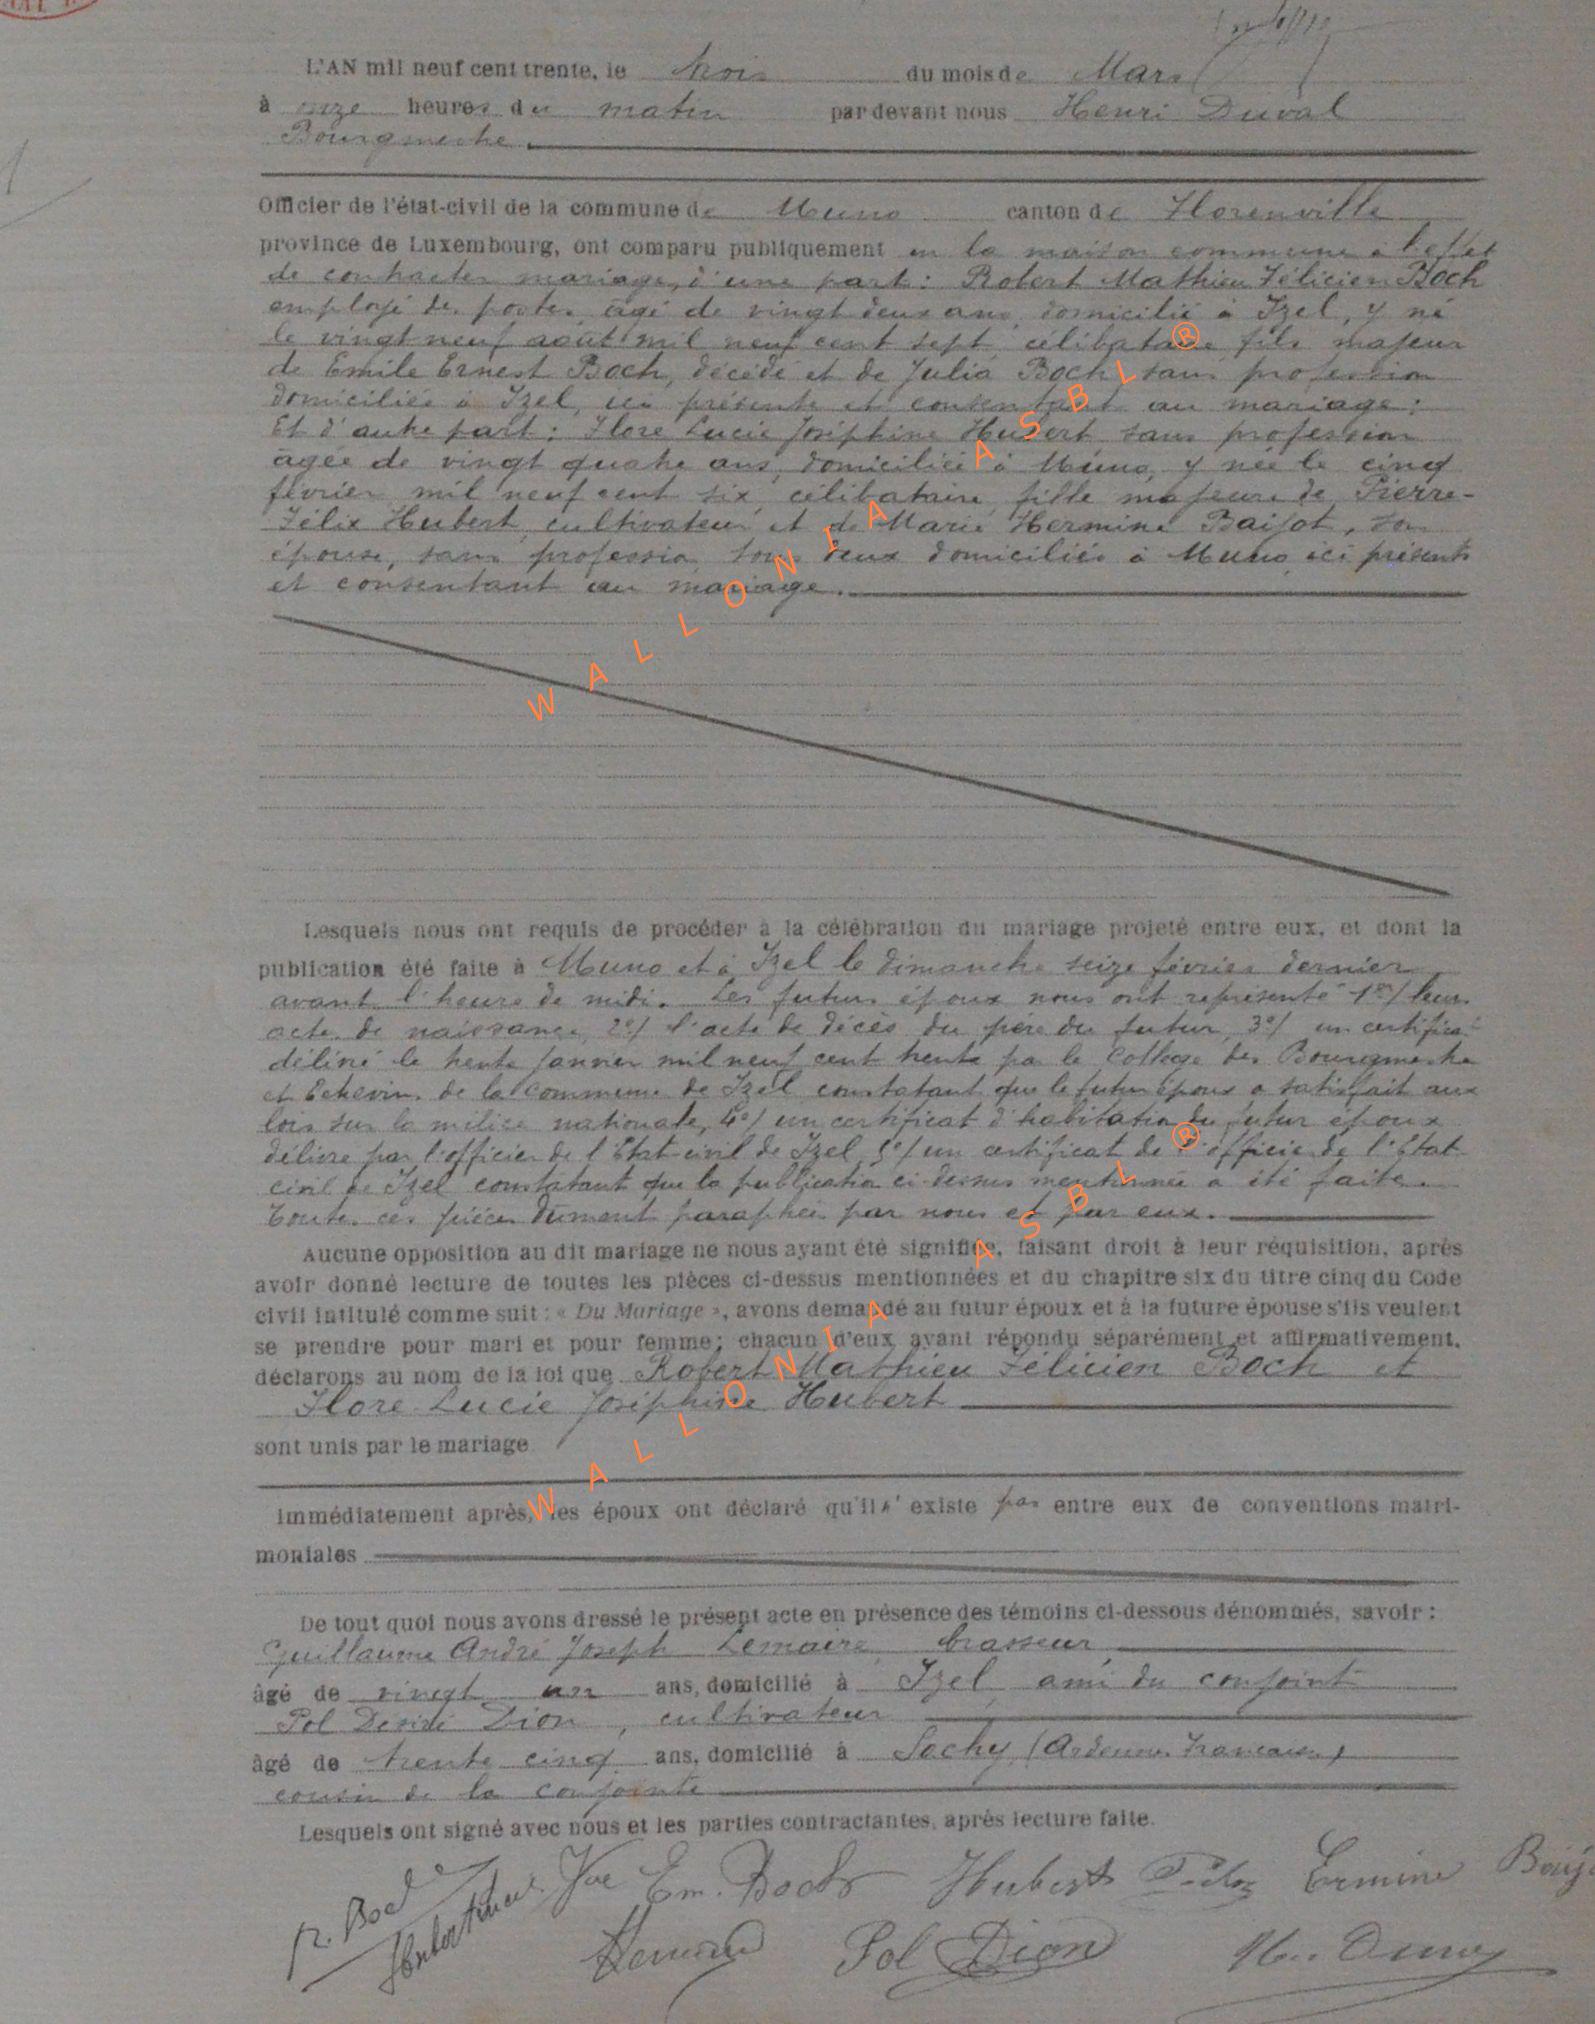 L'AN mil neuf cent trente, le trois du mois de Mars
à onze heures du matin par devant nous Henri Duval
Bourgmestre.
Officier de l'état-civil de la commune de Muno canton de Florenville
province de Luxembourg, ont comparu publiquement en la maison commune à l'effet
de contracter mariage, d'une part : Robert Mathieu Félicien Boch
employé des postes, âgé de vingt deux ans, domicilié à Izel, y né
le vingt neuf août mil neuf cent sept, célibataire, fils majeur
de Emile Ernest Boch, décédé et de Julia Boch sans profession
domiciliée à Izel, ici présente et consentant au mariage ;
Et d'autre part : Flore Lucie Joséphine Hubert sans profession
âgée de vingt quatre ans, domiciliée à Muno, y née le cinq
février mil neuf cent six, célibataire, fille majeure de Pierre-
Félix Hubert, cultivateur et de Marie Hermine Baijot, son
épouse, sans profession tous deux domiciliés à Muno ici présents
et consentant au mariage.
Lesquels nous ont requis de procéder à la célébration du mariage projeté entre eux, et dont la
publication été faite à Muno et à Izel le dimanche seize février dernier
avant l'heure de midi. Les futurs époux nous ont représenté 1er/ leurs
acte de naissance, 2°/ l'acte de décès du père du futur, 3°/ un certificat
délivré le trente janvier mil neuf cent trente par le Collège des Bourgmestre
et Echevins de la commune de Izel constatant que le futur époux a satisfait aux
lois sur la milice nationale, 4°/ un certificat d'habitation du futur époux
délivré par l'officier de l'Etat-civil de Izel, 5°/ un certificat de l'officier de l'Etat-
civil de Izel constatant que la publication ci-dessus mentionnée a été faite.
Toutes ces pièces dûment paraphées par nous et par eux.
Aucune opposition au dit mariage ne nous ayant été signifiée, faisant droit à leur réquisition, après
avoir donné lecture de toutes les pièces ci-dessus mentionnées et du chapitre six du titre cinq du Code
civil intitulé comme suit : « Du Mariage », avons demandé au futur époux et à la future épouse s'ils veulent
se prendre pour mari et pour femme ; chacun d'eux ayant répondu séparément et affirmativement,
déclarons au nom de la loi que Robert Mathieu Félicien Boch et
Flore Lucie Joséphine Hubert
sont unis par le mariage
Immédiatement après, les époux ont déclaré qu'il n' existe pas entre eux de conventions matri-
moniales
De tout quoi nous avons dressé le présent acte en présence des témoins ci-dessous dénommés, savoir :
Guillaume André Joseph Lemaire, brasseur
âgé de vingt un ans, domicilié à Izel, ami du conjoint
Pol Désiré Dion, cultivateur
âgé de trente cinq ans, domicilié à Sachy (Ardennes Françaises)
cousin de la conjointe
Lesquels ont signé avec nous et les parties contractantes, après lecture faite.
R. Boch Vve Em. Boch Hubert Félix Ermine
Pol Dion
WALLONIA ASBL ®
WALLONIA ASBL ®